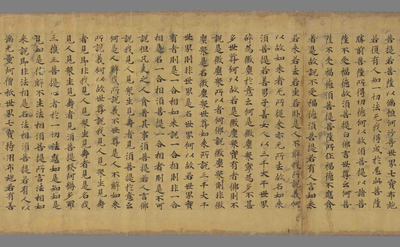 提若菩薩以滿恒河沙等世界七寶布施
若復有人知一切法無我得成於忍此菩薩
勝前菩薩所得功德何以故須菩提以諸菩
薩不受福德故須菩提白佛言世尊云何菩
薩不受福德須菩提菩薩所作福德不應貪
著是故說不受福德須菩提若有人言如來
若來若去若坐若臥是人不解我所說義何
以故如來者無所從來亦無所去故名如來
須菩提若善男子善女人以三千大千世界
碎為微塵於意云何是微塵眾寧為多不甚
多世尊何以故若是微塵眾實有者佛則不
說是微塵眾所以者何佛說微塵眾則非微
塵眾是名微塵眾世尊如來所說三千大千
世界則非世界是名世界何以故若世界實
有者則是一合相如來說一合相則非一合
相是名一合相須菩提一合相者則是不可
說但凡夫之人貪著其事須菩提若人言佛
說我見人見眾生見壽者見須菩提於意云
何是人解我所說義不世尊是人不解如來
所說義何以故世尊說我見人見眾生見壽
者見即非我見人見眾生見壽者見是名我
見人見眾生見壽者見須菩提發阿耨多羅
三藐三菩提心者於一切法應如是知如是
見如是信解不生法相須菩提所言法相者如
來說即非法相是名法相須菩提若有人以
滿無量阿僧祇世界七寶持用布施若有善